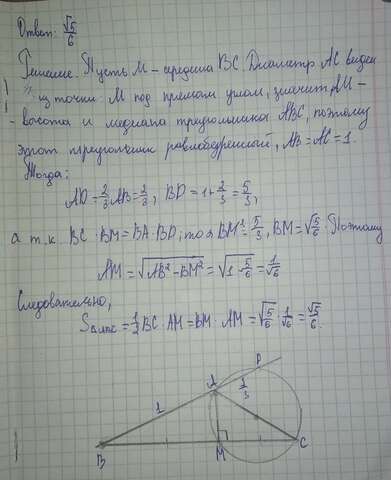 Ответ: √5/6
Решение. Пусть M – середина BC. Диаметр AC виден
из точки M под прямым углом, значит, AM –
- высота и медиана треугольника ABC, поэтому
этот треугольник равнобедренный, AB = AC = 1.
Тогда:
AD = 2/3 AB = 2/3, BD = 1 + 2/3 = 5/3,
а т.к. BC · BM = BA · BD, то 2BM² = 5/3, BM = √5/6. Поэтому
AM = √(AB² – BM²) = √(1 · 5/6) = 1/√6
Следовательно,
S△ABC = 1/2 BC · AM = BM · AM = √5/6 · 1/√6 = √5/6.
A
1
1/3
B
M
C